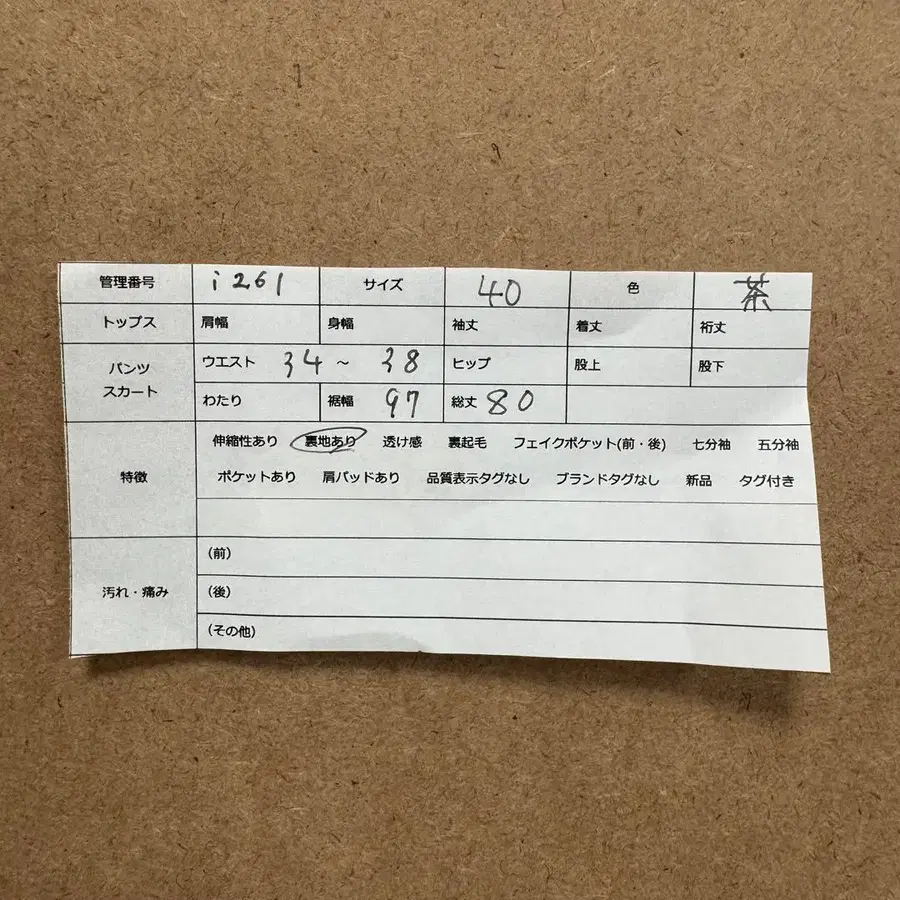 管理番号 i261 サイズ 40 色 茶
トップス 肩幅 身幅 袖丈 着丈 裄丈
パンツ スカート ウエスト 34 ~ 38 ヒップ 股上 股下
わたり 裾幅 97 総丈 80
伸縮性あり 裏地あり 透け感 裏起毛 フェイクポケット(前・後) 七分袖 五分袖
特徴 ポケットあり 肩パッドあり 品質表示タグなし ブランドタグなし 新品 タグ付き
(前)
汚れ・痛み (後)
(その他)